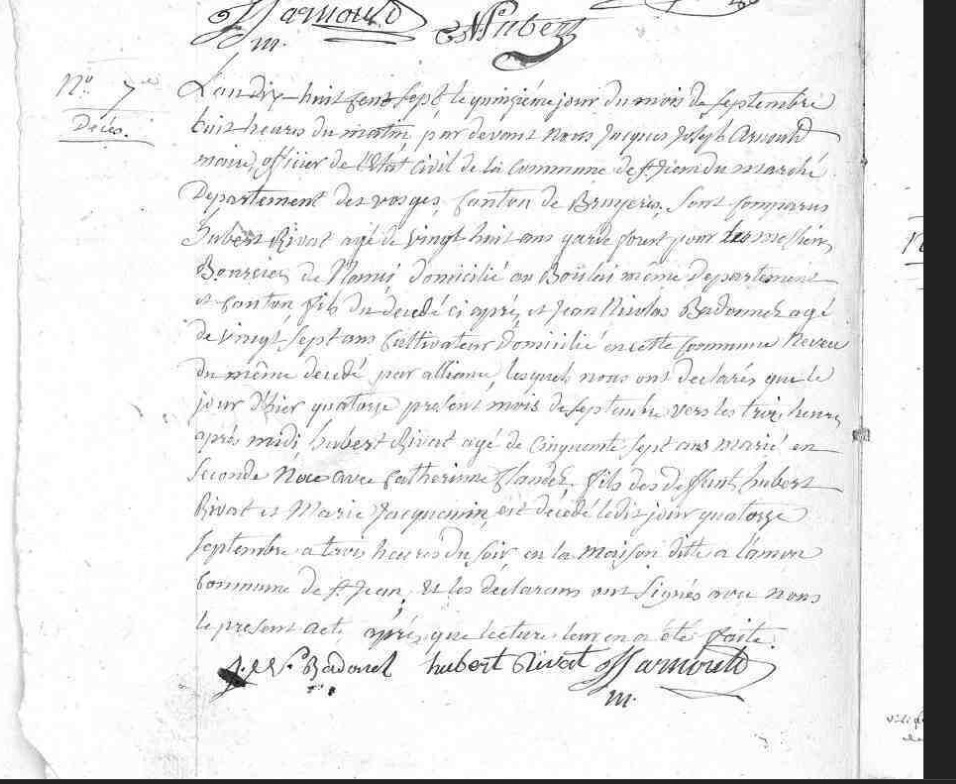 JJarnould
m.
N. Hubert
No. 7me
Décès.
L'an dix-huit cent sept le quinzième jour du mois de septembre
huit heures du matin par devant nous Jacques Joseph Arnould
maire, officier de l'Etat civil de la commune de st Jean du marché
Departement des vosges, Canton de Bruyeres, sont comparus
hubert Rivat agé de vingt huit ans garde foret pour les messieurs
Bourcier de domicilié au Boulai même Departement
et canton, fils du decedé ci après, et Jean Nicolas Badonnel agé
de vingt sept ans Cultivateur Domicilié en cette commune Neveu
du même decedé par alliance, lesquels nous ont declarés que le
jour d'hier quatorze present mois de septembre vers les trois heures
après midi, hubert Rivat agé de cinquante sept ans marié en
seconde Noce avec Catherinne fils des deffunts hubert
Rivat et Marie Jacquemin, est décedé ledit jour quatorze
septembre a trois heures du soir en la maison ditte a
commune de st Jean, Et les déclarans ont signés avec nous
le present acte après que lecture leur en a été faite.
J. N. Badonel hubert Rivat JJarnould
m.